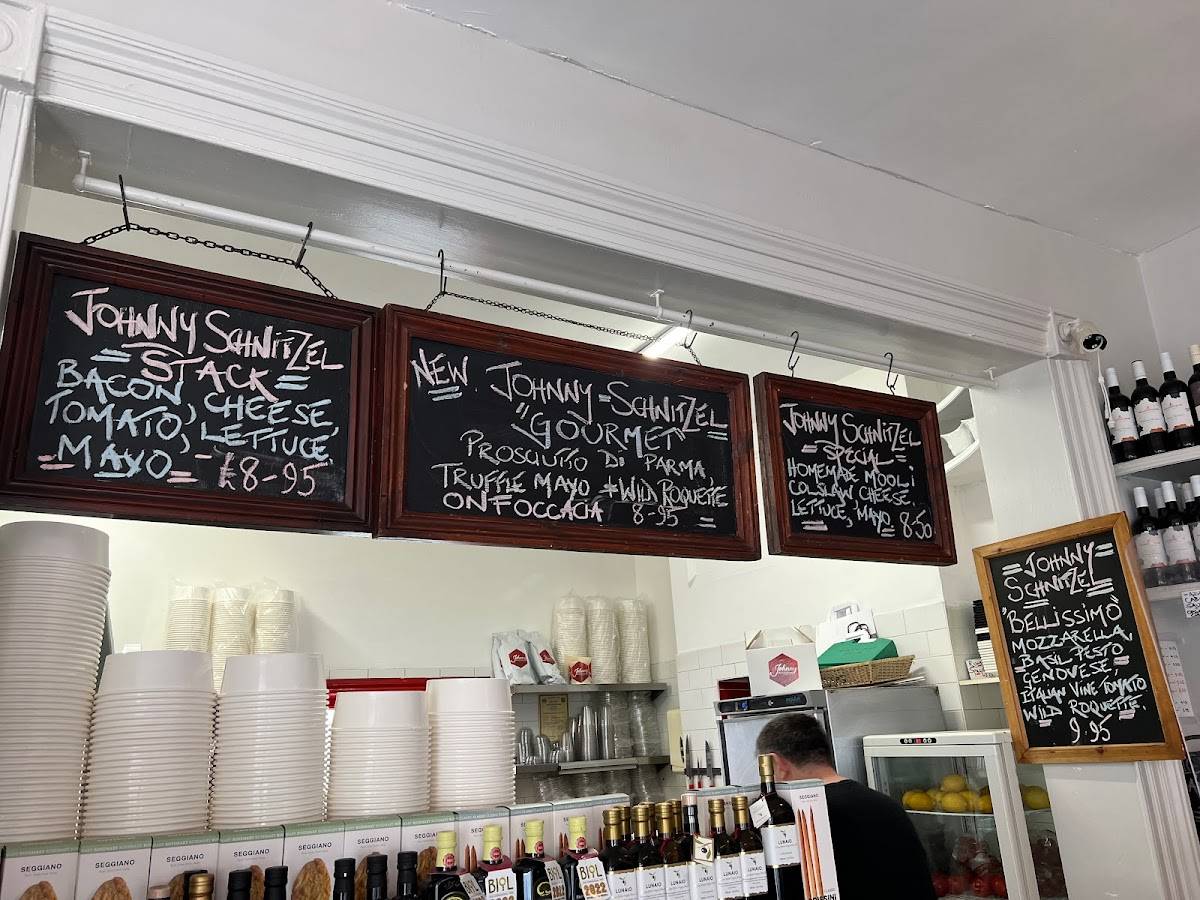 JOHNNY SCHNITZEL
STACK
BACON, CHEESE
TOMATO, LETTUCE,
MAYO - £8-95
NEW. JOHNNY-SCHNITZEL
"GOURMET"
PROSCUTTO DI PARMA,
TRUFFLE MAYO + WILD ROQUETTE
ON FOCCACIA 8-95
JOHNNY SCHNITZEL
SPECIAL
HOMEMADE MOOLI
COLSLAW, CHEESE,
LETTUCE, MAYO 8-50
JOHNNY
SCHNITZEL
"BELLISSIMO"
MOZZARELLA,
BASIL PESTO
GENOVESE
ITALIAN VINE TOMATO
WILD ROQUETTE.
9.95
Johnny
SEGGIANO
SEGGIANO
SEGGIANO
SEGGIANO
SEGGIANO
SEGGIANO
BIOL
BIOL
2022
LUNAIO
LUNAIO
LUNAIO
LUNAIO
LUNAIO
LUNAIO